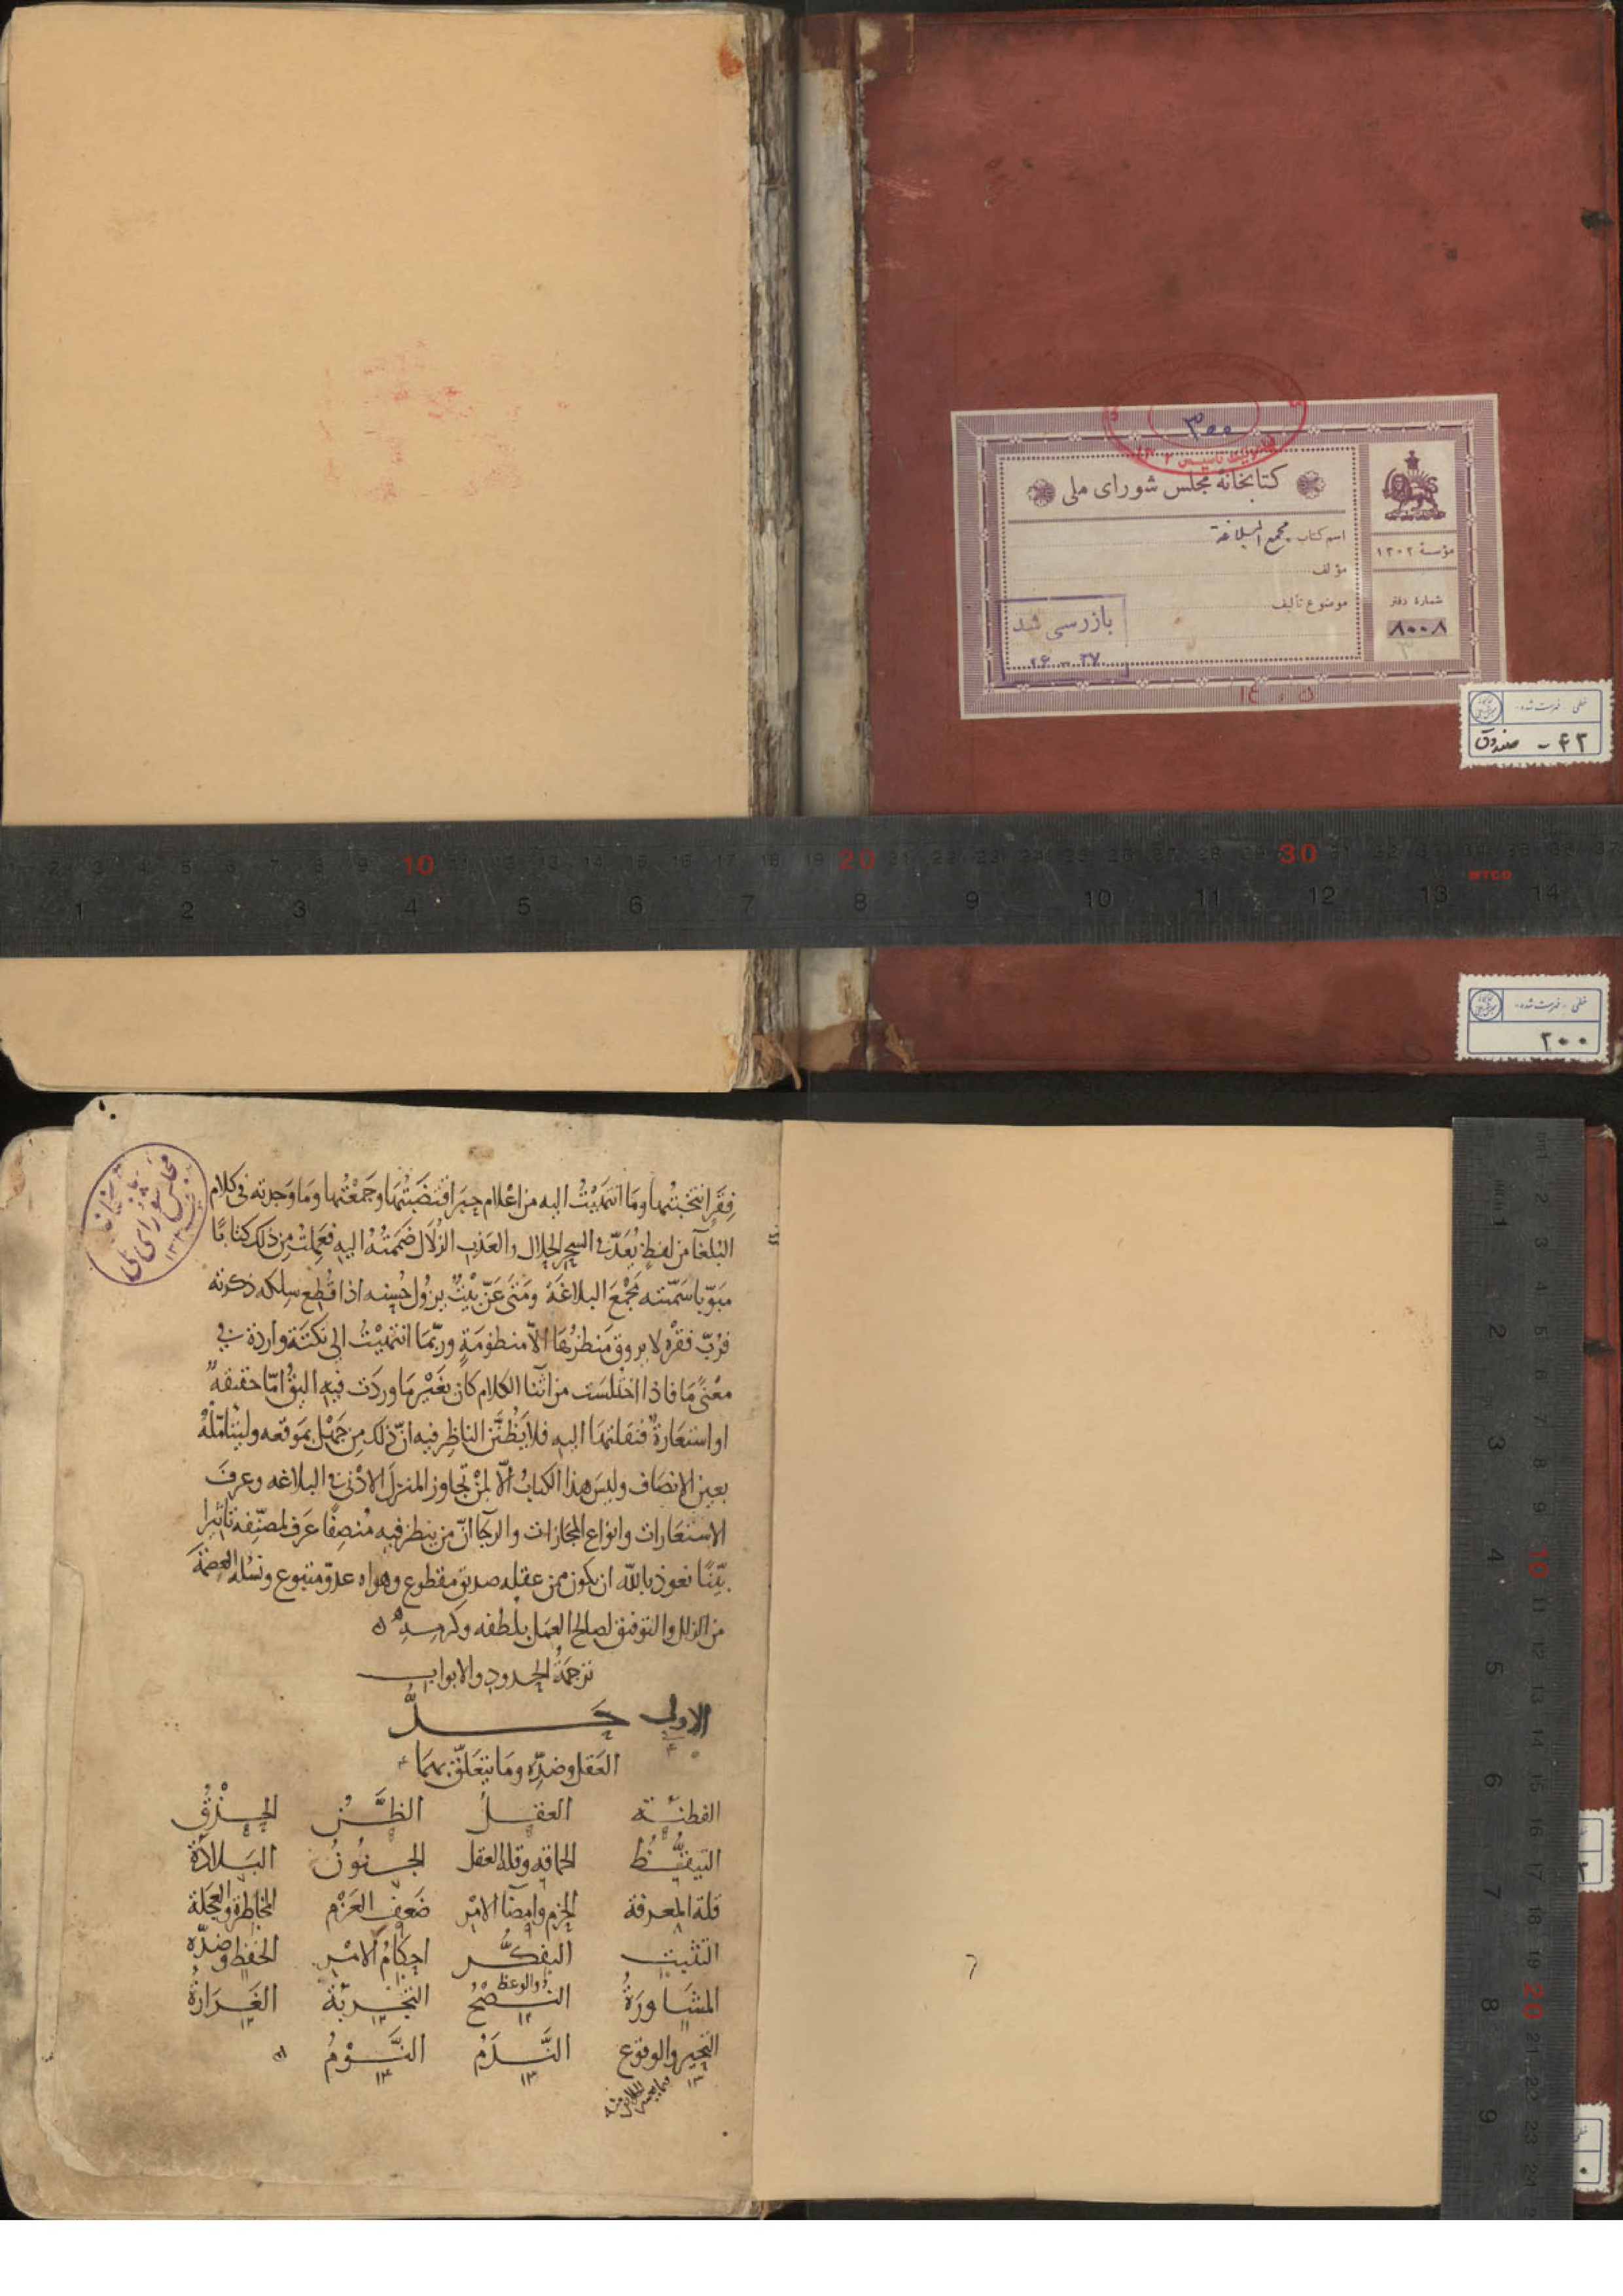 ٣٠٠
كتابخانهٔ مجلس شورای ملی
اسم كتاب مجمع البلاغة
مؤلف
موضوع تأليف
مؤسسهٔ ١٣٠٢
شمارهٔ دفتر
٨٠٠٨
بازرسی شد
٣٧ - ٢۶
١٤٠٥
خطی - فهرست شده
۴۲ - صندوق
خطی - فهرست شده
٢٠٠
فِقَر انتخبتُها وما انتهَيْتُ اليه من اعلام حِبَر اقتضَبْتُها وجَمَعْتُها وما وَجدته فى كلام
البُلغآ من لفظٍ يُعَدّ فى السِحر الحلال والعَذب الزُلال ضَممتُهُ اليه فعَمِلتُ مِن ذلك كتابًا
مبوّبا سَمّيته مَجْمَعَ البلاغة ومَتى عَنّ بيْتٌ يزول حُسنه اذا قُطع سِلكه ذكرته
فرُبّ فقرة لا يروق مَنظرُها الاّ منظومَةٍ وربّما انتهيْتُ الى نكتة واردة فى
معْنًى مَا فاذا اختُلسَت من اثنآ الكلام كان بغَيْر ما وردَت فيه اليقُ امّا حقيقةً
او استعَارةً فنقلتها اليه فلا يَظُنَّن الناظر فيه انّ ذلك مِن جَهْل بموقعه وليتأمّلْهُ
بعين الانصَاف وليسَ هذا الكتابُ الاّ لمَنْ تجاوز المنزلَ الادْنى فى البلاغه وعرفَ
الاستعَارات وانواع المجازات والرجآ انّ من ينظر فيه مُنصِفًا عَرَف لمصنّفه تاثيرا
بيّنًا نعوذ بالله ان يكون ممن عقله صديق مقطوع وهواه عدوّ متبوع ونسْله العِصْمَة
من الزلل والتوفيق لصالح العمَل بلُطفه وكرمه
ترجمَةُ الحدود والابواب
الاولى حَدُّ
العَقل وضدّه ومَا يتعَلّق بهمَا
الفطنَة العقلُ الظَّنّ الحِذقُ
التيقُّظ الحماقه وقلة العقل الجنُونُ البَلادَةُ
قلة المعرفة الحزم وامضآ الامْر ضَعف العَزْم المخاطرة والعجَلة
التثبّت التفكُّر احكَامُ الامْر الحفظ وضدّه
المشَاورَةُ النُصْحُ والوعظ التجْربَةُ الغَرَارَةُ
التحيّر والوقوع النَّدَمُ النَّوْمُ